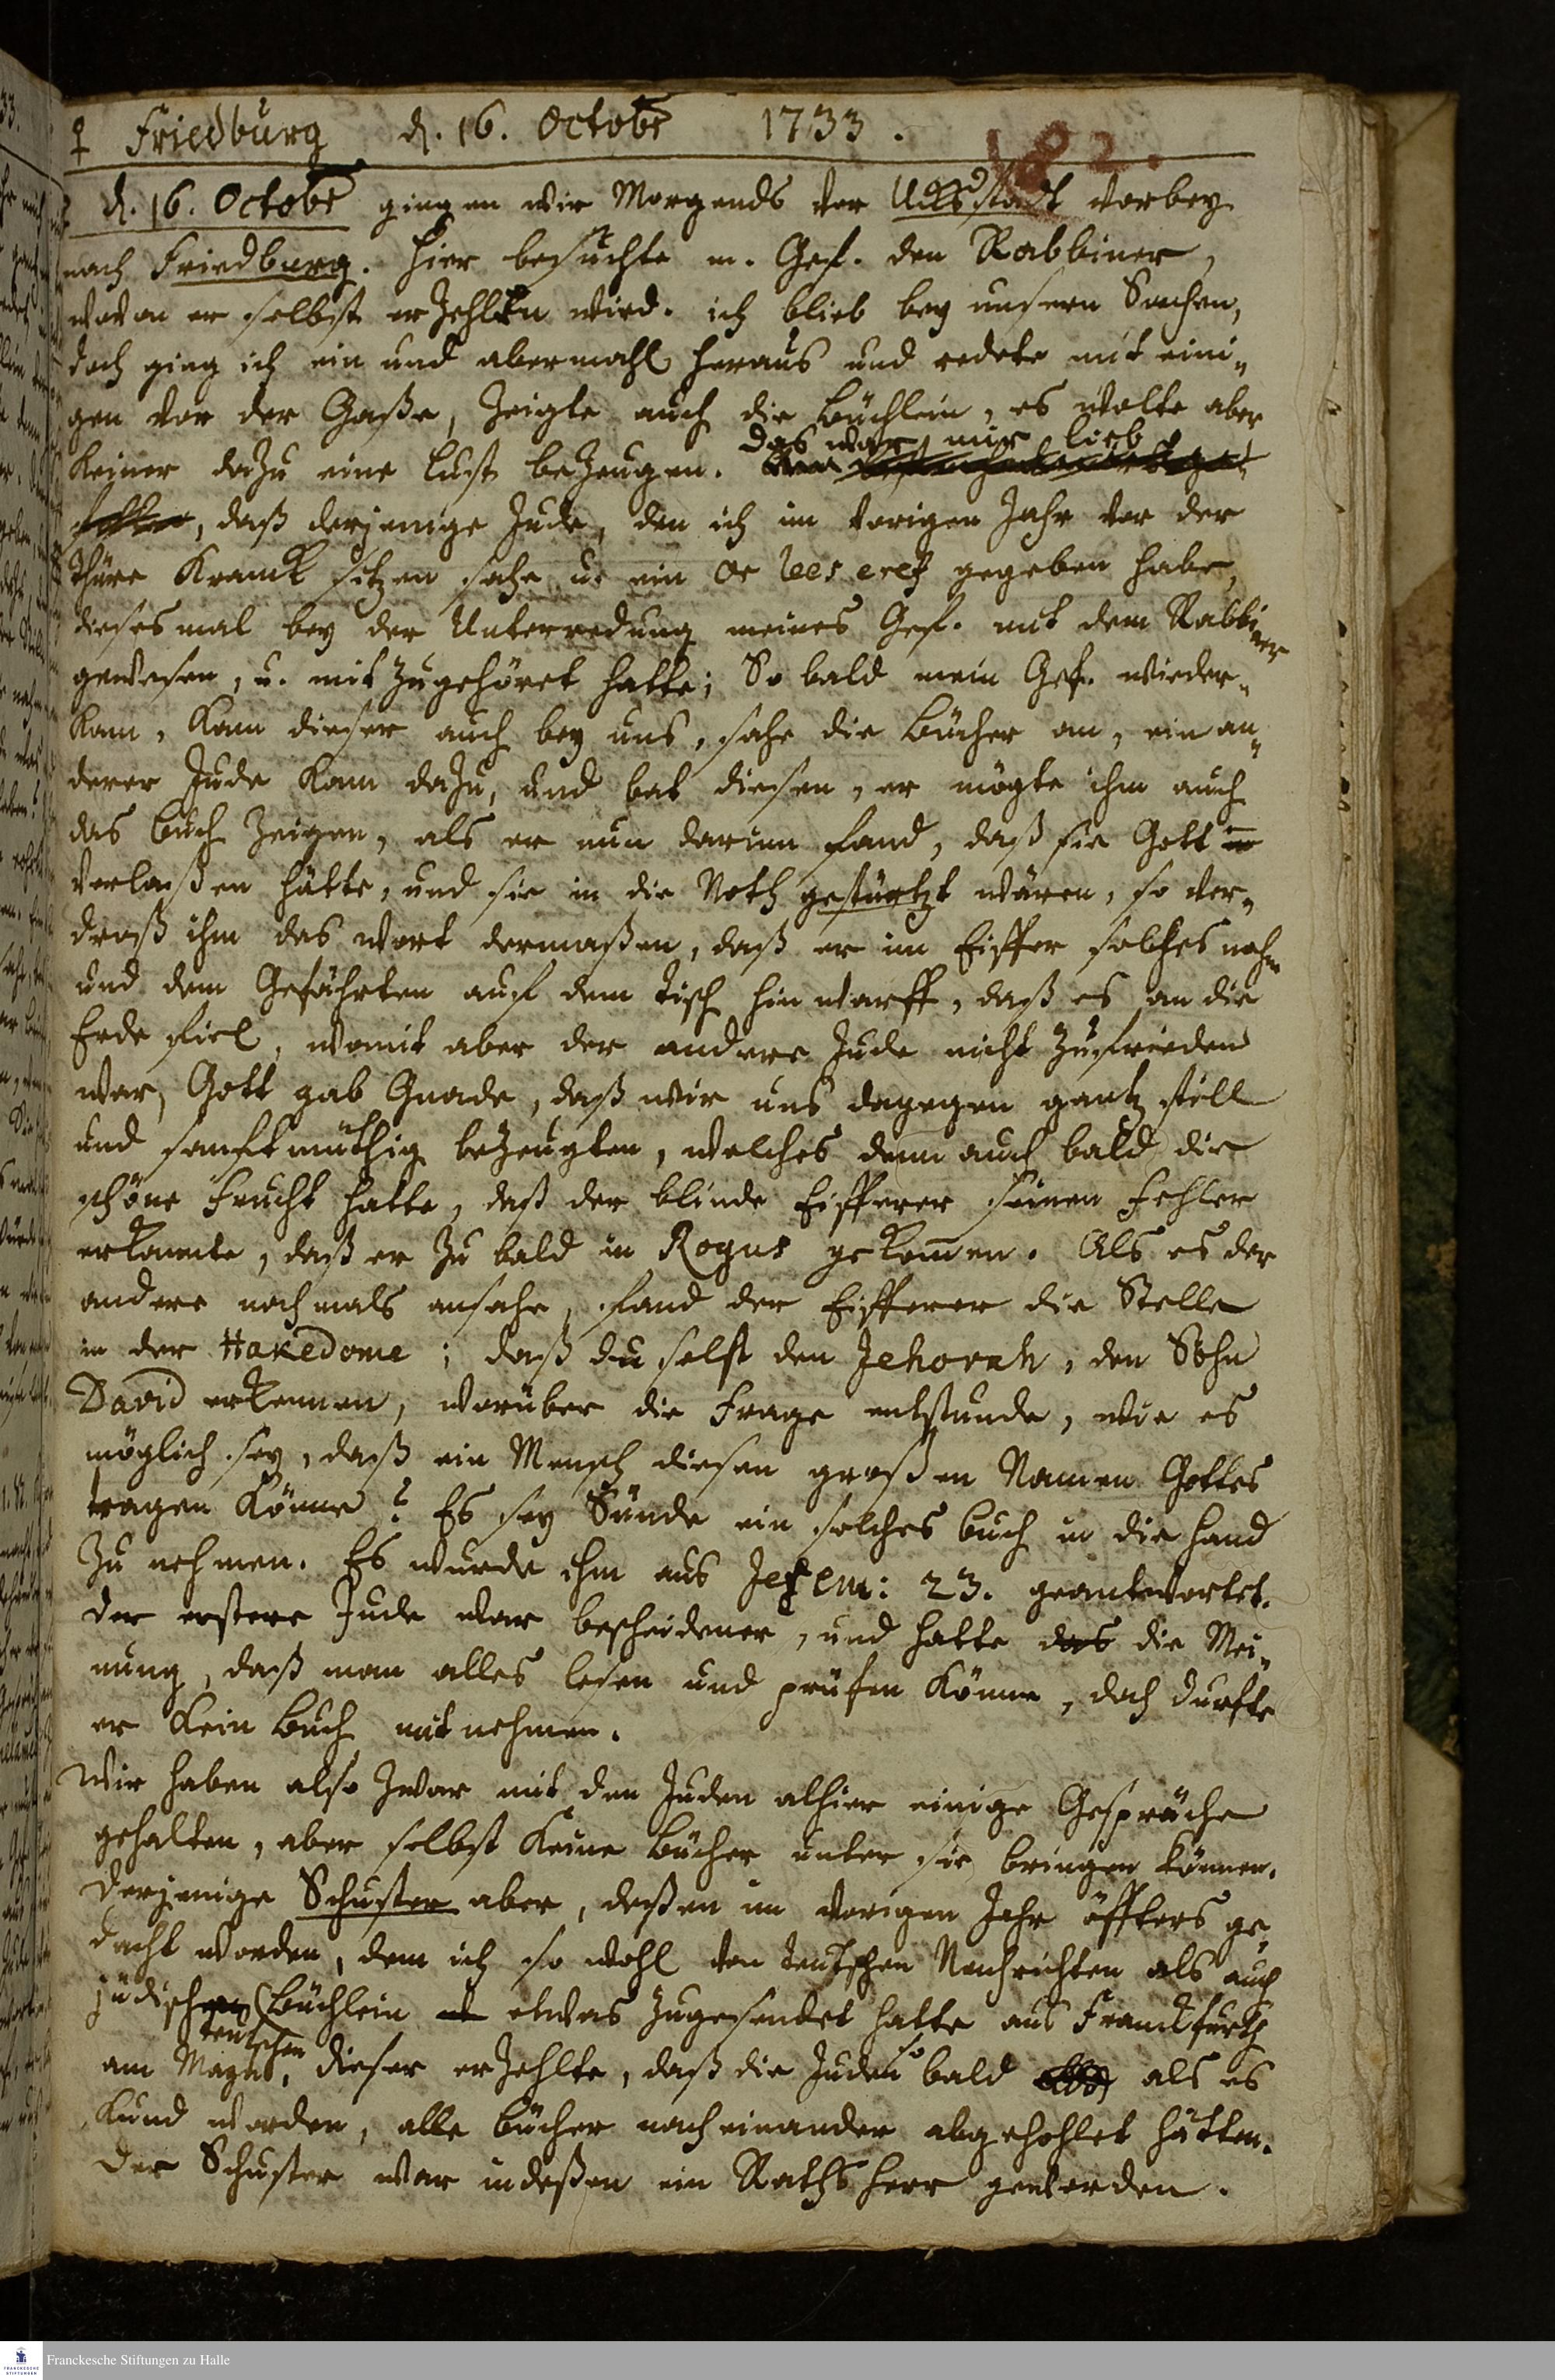 ♀ Friedburg d. 16. Octobr 1733.
182.
d. 16. Octobr gingen wir Morgends vor stadt vorbey
nach Friedburg. Hier besuchte m. Gef. den Rabbiner,
wovon er selbst erzehlen wird. ich blieb bey unsern Sachen,
doch ging ich ein und abermahl heraus und redete mit eini-
gen vor der Gaße, zeigte auch die Büchlein, es wolte aber
das war mir lieb
keiner dazu eine Lust bezeugen.
, daß derjenige Jude, den ich im vorigen Jahr vor der
Thüre kranck sitzen sahe u. ein Or lees eref gegeben habe,
dieses mal bey der Unterredung meines Gef. mit dem Rabbiner
gewesen, u. mit zugehöret hatte; So bald mein Gef. wieder-
kam, kam dieser auch bey uns, sahe die Bücher an, ein an-
derer Jude kam dazu, und bat diesen, er mögte ihm auch
das Buch zeigen, als er nun darinn fand, daß sie Gott
verlaßen hätte, und sie in die Noth gestürtzt wären, so ver-
droß ihm das wort dermaßen, daß er im Eiffer solches nahm
und dem Gefährten auf dem Tisch hin warff, daß es an die
Erde fiel, womit aber der andere Jude nicht zufrieden
war, Gott gab Gnade, daß wir uns dagegen gantz still
und sanftmüthig bezeugten, welches denn auch bald die
schöne Frucht hatte, daß der blinde Eifferer seinen Fehler
erkannte, daß er zu bald in Rogus gekommen. Als es der
andere nochmals ansahe, fand der Eifferer die Stelle
in der Hakedome; daß du solst den Jehovah, den Sohn
David erkennen, worüber die Frage entstunde, wie es
möglich sey, daß ein Mensch diesen großen Namen Gottes
tragen könne? Es sey Sünde ein solches Buch in die Hand
zu nehmen. Es wurde ihm aus Jerem: 23. geantwortet.
der erstere Jude war bescheidener, und hatte das die Mei-
nung, daß man alles lesen und prüfen könne, doch durfte
er kein Buch mit nehmen.
Wir haben also zwar mit den Juden alhier einige Gespräche
gehalten, aber selbst keine Bücher unter sie bringen können.
Derjenige Schuster aber, deßen im vorigen Jahr öffters ge-
dacht worden, dem ich so wohl von teutschen Nachrichten als auch
jüdischen Büchlein etwas zugesendet hatte aus Franckfurth
teutschen
am Mayn, dieser erzehlte, daß die Juden so bald als es
kund worden, alle Bücher nach einander abgehohlet hätten.
Der Schuster war indeßen ein Rathsherr geworden.
FRANCKESCHE STIFTUNGEN
Franckesche Stiftungen zu Halle